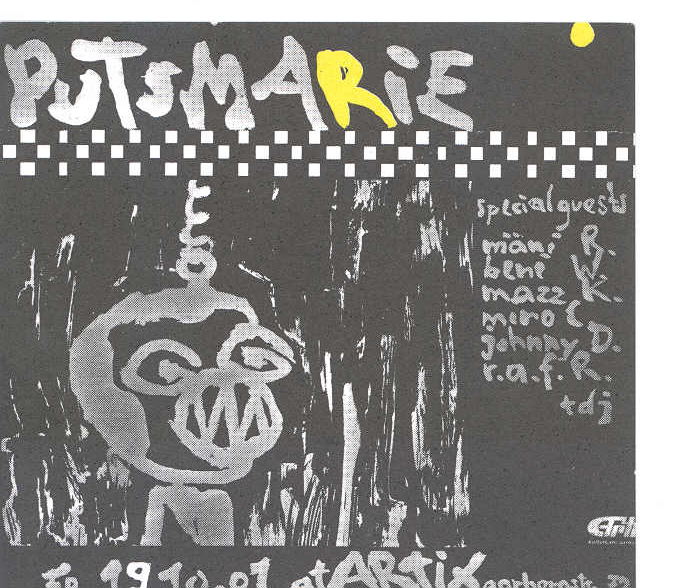 PUTSMARiE
special guests
mäni R.
bene W.
mazz K.
miro C.
johnny D.
r.a.f. R.
+dj
19.10.01 at ARTiX